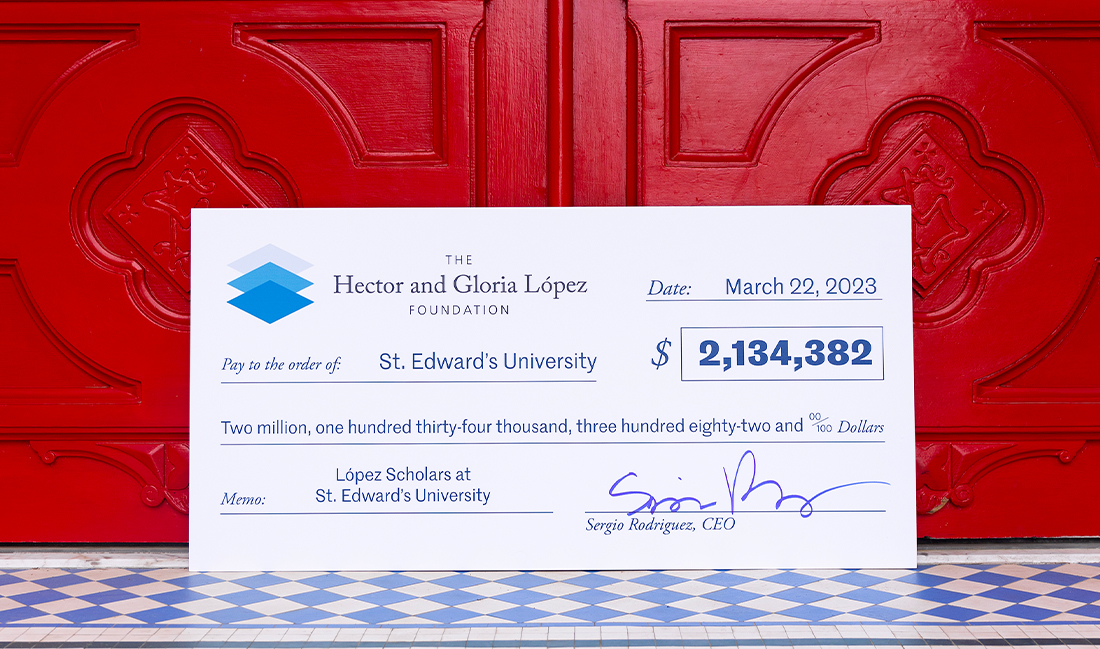 THE
Hector and Gloria López
FOUNDATION
Date: March 22, 2023
$ 2,134,382
Pay to the order of: St. Edward's University
Two million, one hundred thirty-four thousand, three hundred eighty-two and 00/100 Dollars
López Scholars at
Memo: St. Edward's University
Sergio Rodriguez, CEO